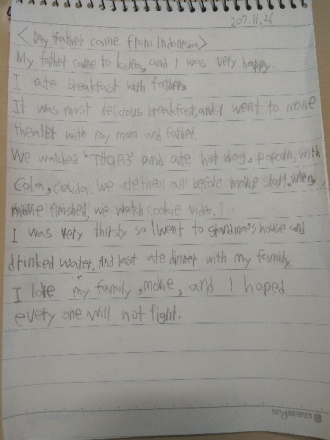 207.11.21
<my father came from Indonesia>
My father came to korea, and I was very happy.
I ate breakfast with father.
It was most delicious breakfast, and I went to movie
theater with my mom and father.
We watched "THOR3" and ate hot dog, popcorn, with
cola, we ate them all before movie start, when
movie finished, we watch cookie video.
I was very thirsty so I went to grandma's house and
drinked water. And last ate dinner with my family
I love my family, movie, and I hoped
every one will not fight.